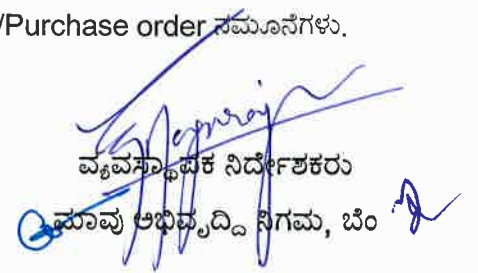 /Purchase order ನಮೂನೆಗಳು.
ವ್ಯವಸ್ಥಾಪಕ ನಿರ್ದೇಶಕರು
ಮಾವು ಅಭಿವೃದ್ದಿ ನಿಗಮ, ಬೆಂ